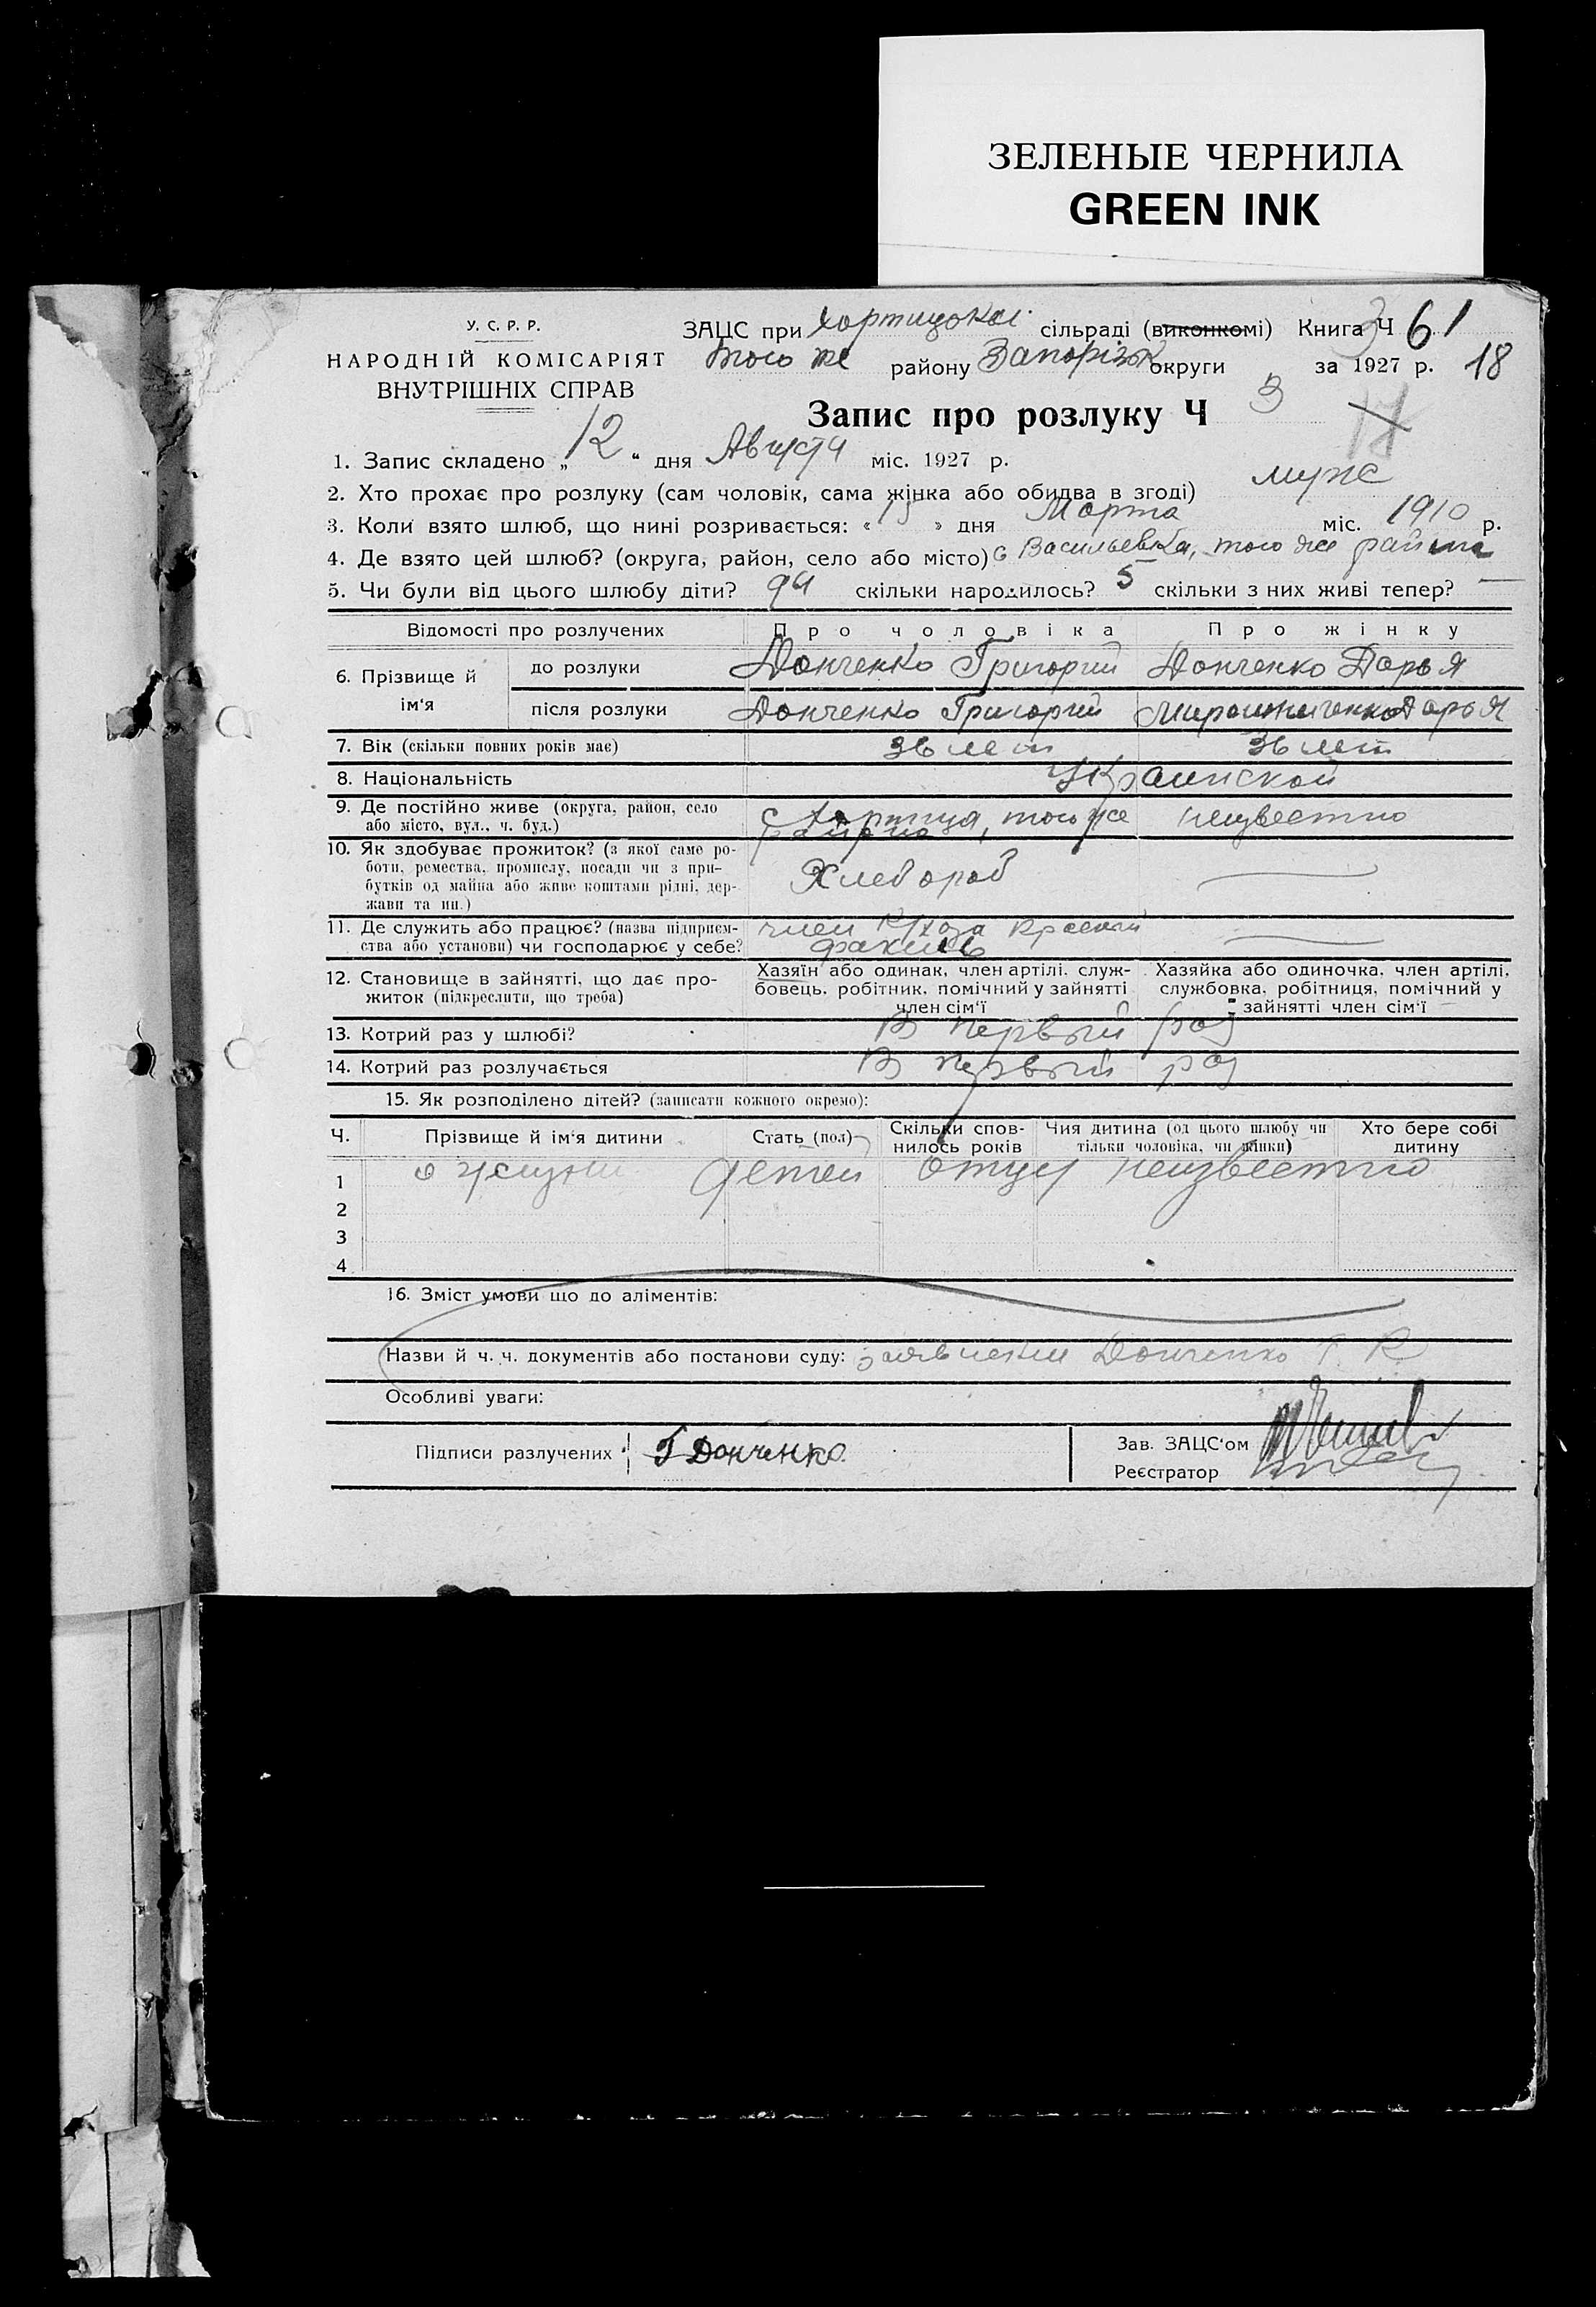 ЗЕЛЕНЫЕ ЧЕРНИЛА
GREEN INK
У. С. Р. Р.
НАРОДНІЙ КОМІСАРІЯТ
ВНУТРІШНІХ СПРАВ
ЗАЦС при Хортицокой сільраді (виконкомі) Книга Ч 3 61
того же району Запорізьк округи за 1927 р. 18
Запис про розлуку Ч 3
1. Запис складено „12“ дня Августа міс. 1927 р.
2. Хто прохає про розлуку (сам чоловік, сама жінка або обидва в згоді) муж
3. Коли взято шлюб, що нині розривається: « 15 » дня Марта міс. 1910 р.
4. Де взято цей шлюб? (округа, район, село або місто) с Васильевка, того же района
5. Чи були від цього шлюбу діти? да скільки народилось? 5 скільки з них живі тепер? —
Відомості про розлучених Про чоловіка Про жінку
6. Прізвище й ім'я до розлуки Донченко Григорий Донченко Дарья
після розлуки Донченко Григорий Мирошниченко Дарья
7. Вік (скільки повних років має) 36 лет 36 лет
8. Національність Украинской
9. Де постійно живе (округа, район, село або місто, вул., ч. буд.) с Хортица, того же района неизвестно
10. Як здобуває прожиток? (з якої саме роботи, ремества, промислу, посади чи з прибутків од майна або живе коштами рідні, держави та ин.) Хлебороб —
11. Де служить або працює? (назва підприємства або установи) чи господарює у себе? член К/хоза Красный факиль —
12. Становище в зайнятті, що дає прожиток (підкреслити, що треба)
Хазяїн або одинак, член артілі, службовець, робітник, помічний у зайнятті член сім'ї
Хазяйка або одиночка, член артілі, службовка, робітниця, помічний у зайнятті член сім'ї
13. Котрий раз у шлюбі? В первый раз
14. Котрий раз розлучається В первый раз
15. Як розподілено дітей? (записати кожного окремо):
Ч. Прізвище й ім'я дитини Стать (пол) Скільки сповнилось років Чия дитина (од цього шлюбу чи тільки чоловіка, чи жінки) Хто бере собі дитину
1 о жизни детей отцу неизвестно
2
3
4
16. Зміст умови що до аліментів:
Назви й ч. ч. документів або постанови суду: заявления Донченко Г. К
Особливі уваги:
Підписи разлучених Г Донченко
Зав. ЗАЦС'ом
Реєстратор